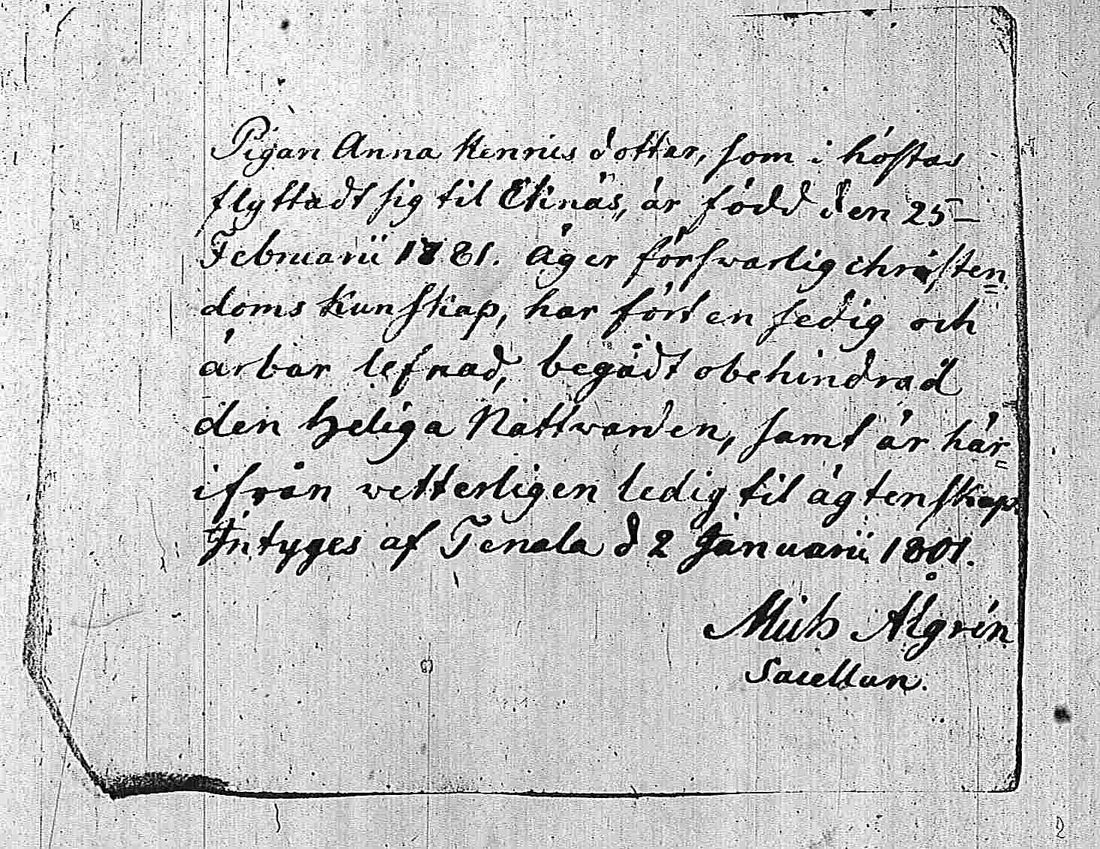 Pigan Anna Henrics dotter, som i höstas
flyttadt sig til Ekinäs, är född den 25
Februarii 1781. Äger försvarlig christen=
doms Kunskap, har fört en sedig och
ärbar lefnad, begådt obehindrad
den Heliga Nattvarden, samt är här=
ifrån vetterligen ledig til ägtenskap.
Intyges af Tenala d 2 Januarii 1801.
Mich Ålgrén
Sacellan.
2